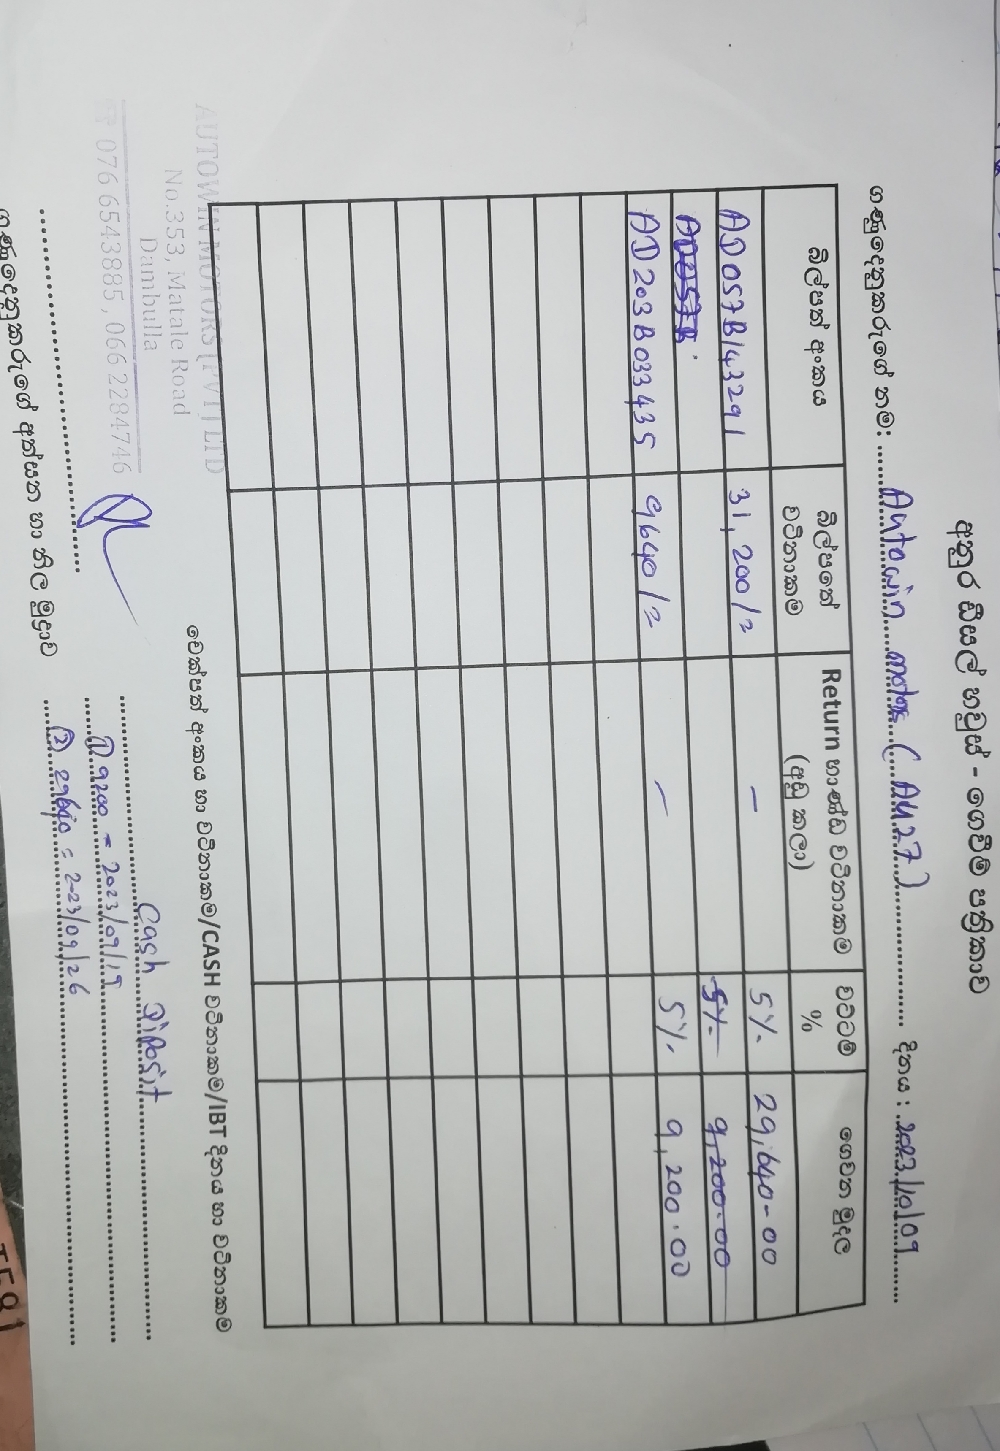 අනුර ඩීසල් හවුස් - ගෙවීම් පත්‍රිකාව
ගණුදෙනුකරුගේ නම: Autowin motors (AU27) දිනය : 2023/10/09
බිල්පත් අංකය බිල්පතේ වටිනාකම Return භාණ්ඩ වටිනාකම (අඩු කලා) වට්ටම් % ගෙවන මුදල
AD057B143291 31,200/= - 5% 29,640-00
AD057B 5% 9,200.00
AD203B033435 9640/= - 5% 9,200.00
AUTOWIN MOTORS (PVT) LTD
No.353, Matale Road
Dambulla
076 6543885, 066 2284746
ගණුදෙනුකරුගේ අත්සන හා නිල මුද්‍රාව
චෙක්පත් අංකය හා වටිනාකම/CASH වටිනාකම/IBT දිනය හා වටිනාකම
Cash Diposit
① 9200 = 2023/09/19
② 29640 = 2-23/09/26